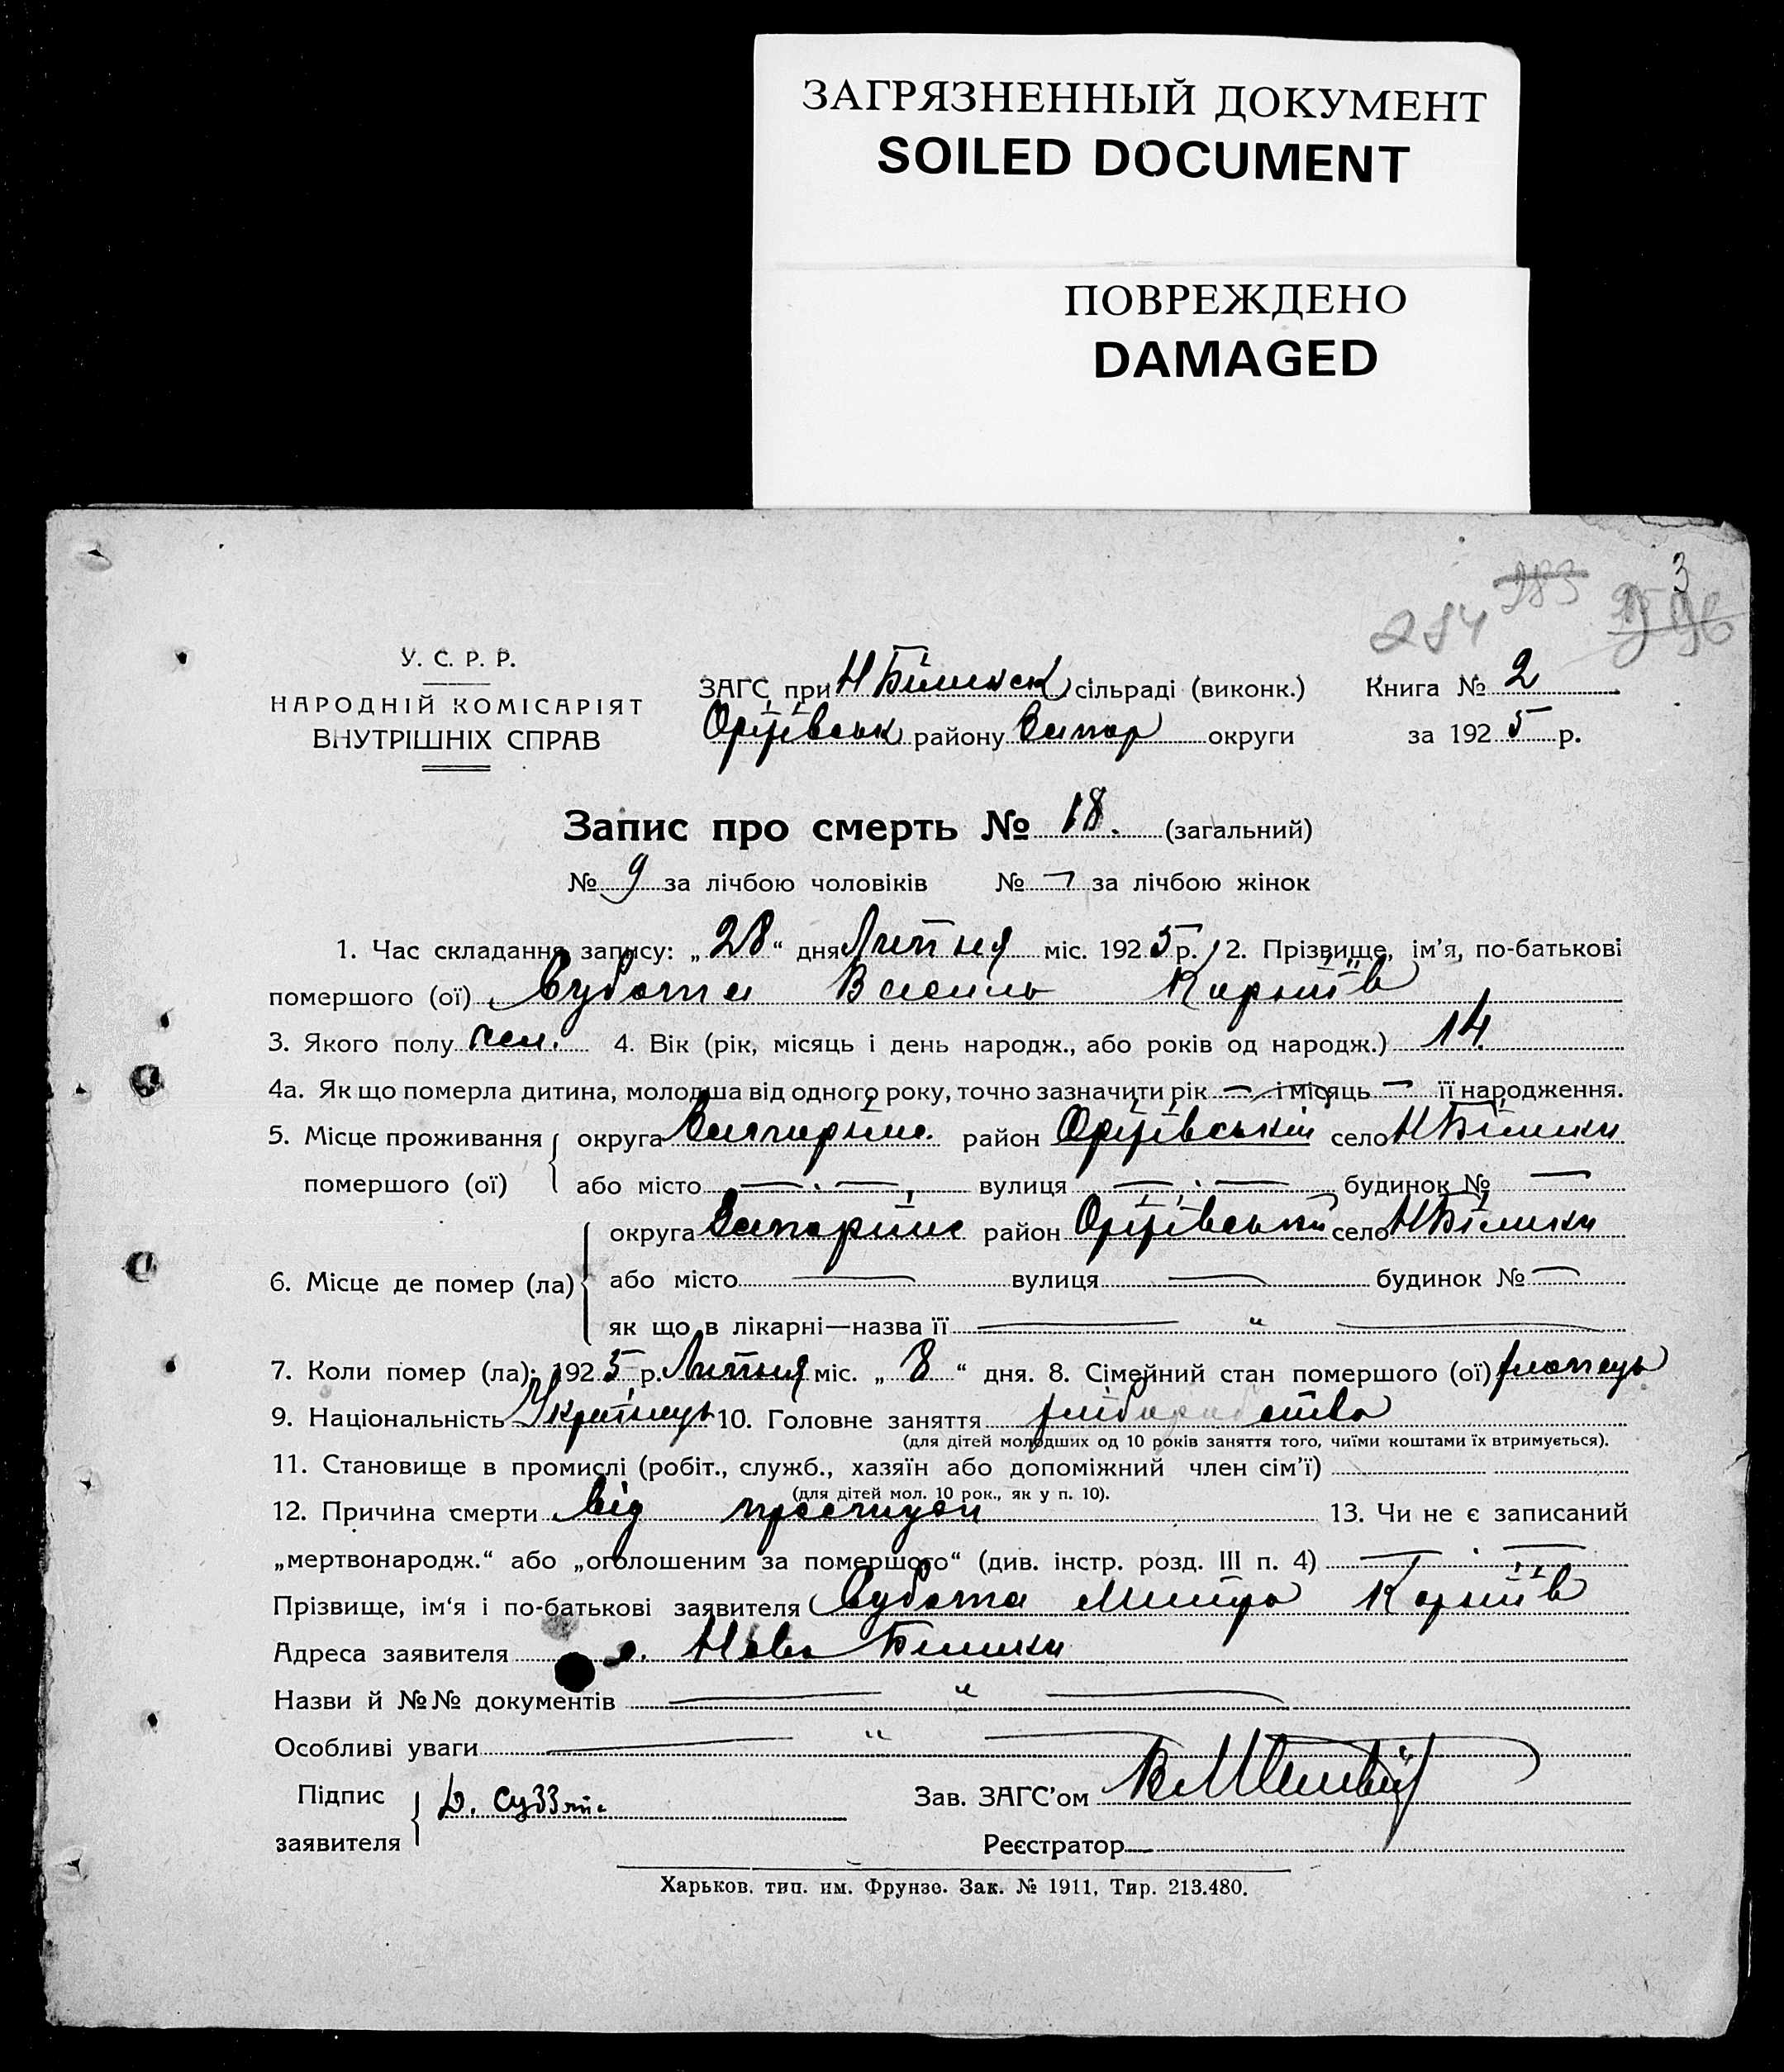 ЗАГРЯЗНЕННЫЙ ДОКУМЕНТ
SOILED DOCUMENT
ПОВРЕЖДЕНО
DAMAGED
3
284 283
У. С. Р. Р.
НАРОДНІЙ КОМІСАРІЯТ
ВНУТРІШНІХ СПРАВ
ЗАГС при Н Білинск сільраді (виконк.) Книга № 2
Оріхівськ району Запор округи за 1925 р.
Запис про смерть № 18. (загальний)
№ 9 за лічбою чоловіків № — за лічбою жінок
1. Час складання запису: „28“ дня Липня міс. 1925 р. 2. Прізвище, ім’я, по-батькові
помершого (ої) Субота Василь Корніїв
3. Якого полу чол. 4. Вік (рік, місяць і день народж., або років од народж.) 14
4а. Як що померла дитина, молодша від одного року, точно зазначити рік — і місяць — її народження.
5. Місце проживання помершого (ої) округа Запоріжж. район Оріхівський село Н Білики
або місто — . — вулиця — . — будинок № —
6. Місце де помер (ла) округа Запоріжж район Оріхівський село Н Білики
або місто — вулиця — будинок № —
як що в лікарні—назва її — „ —
7. Коли помер (ла): 1925 р. Липня міс. „8“ дня. 8. Сімейний стан помершого (ої) хлопець
9. Національність Українець 10. Головне заняття хліборобство
(для дітей молодших од 10 років заняття того, чиїми коштами їх втримується).
11. Становище в промислі (робіт., служб., хазяїн або допоміжний член сім’ї)
(для дітей мол. 10 рок., як у п. 10).
12. Причина смерти від простуди 13. Чи не є записаний
„мертвонародж.“ або „оголошеним за помершого“ (див. інстр. розд. III п. 4) — . —
Прізвище, ім‘я і по-батькові заявителя Субота Митро Корніїв
Адреса заявителя с. Нова Білики
Назви й №№ документів — „ —
Особливі уваги — „ —
Підпис заявителя Д. Зав. ЗАГС’ом
Реєстратор
Харьков, тип. им. Фрунзе. Зак. № 1911, Тир. 213.480.